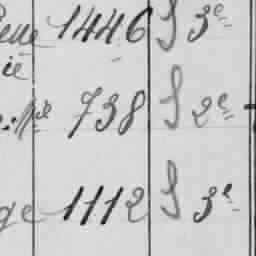 1446 S 3e
ie
738 S 2e
ge 1112 S 3e